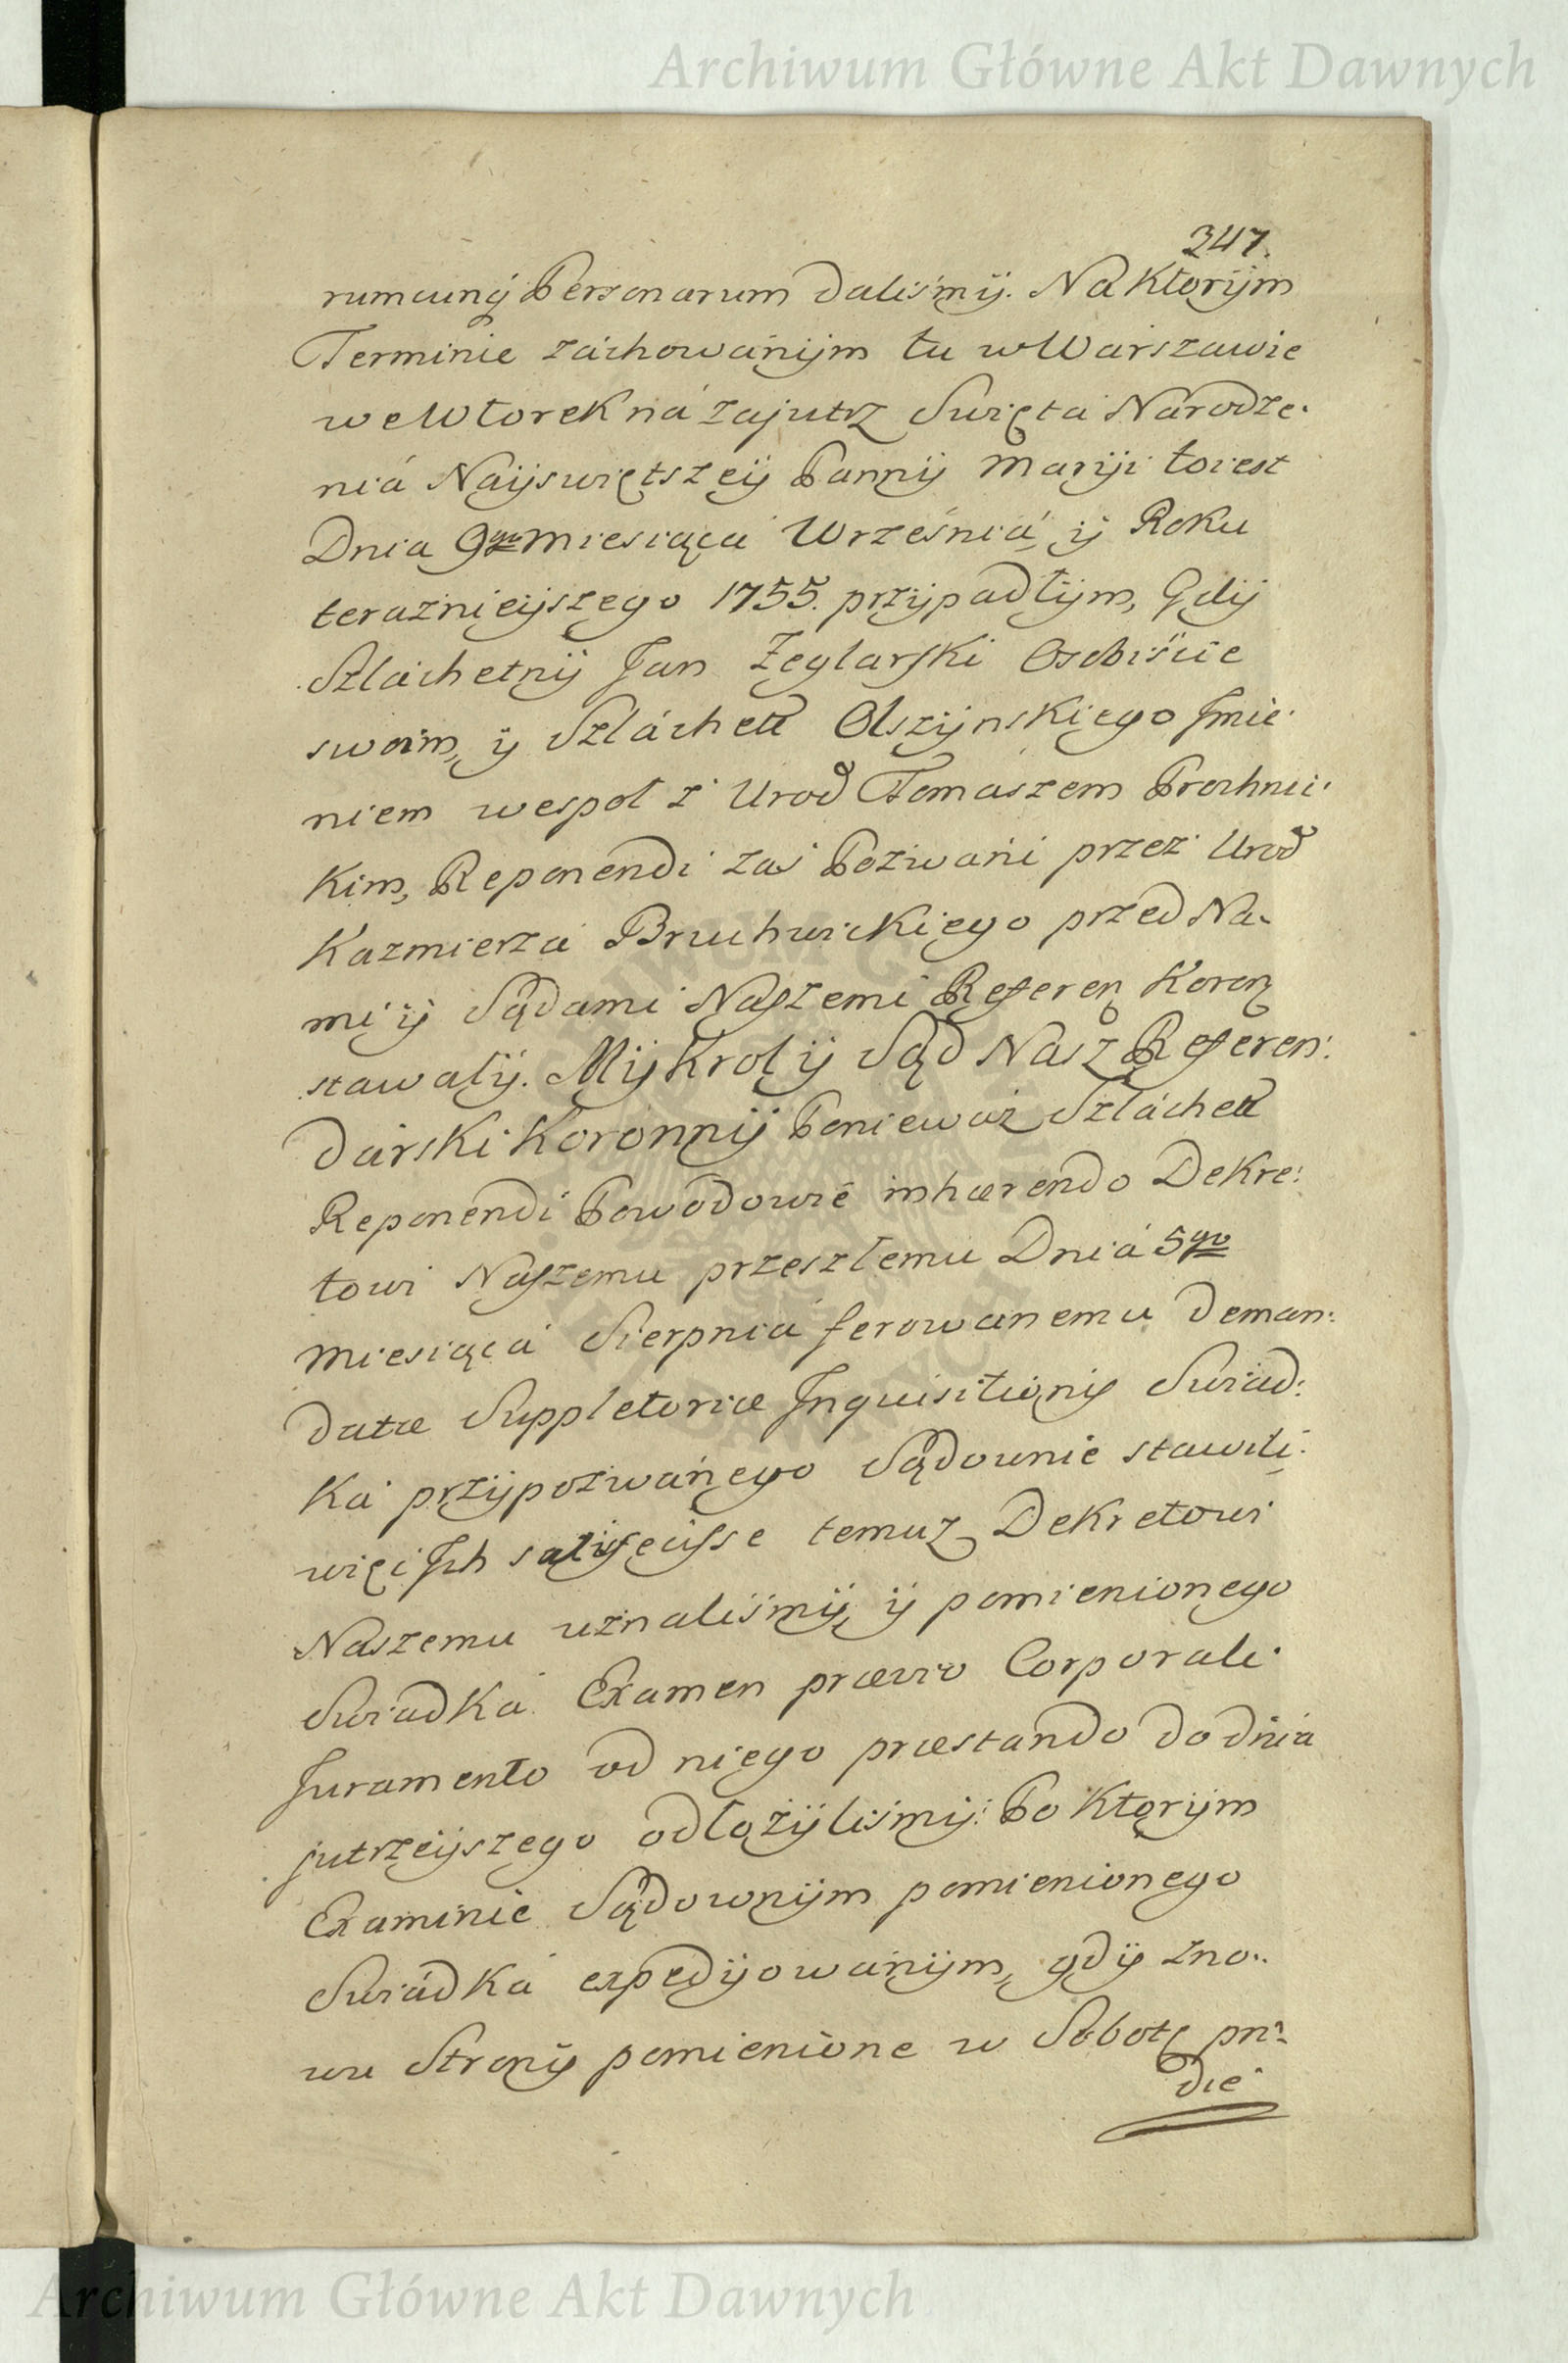 Archiwum Główne Akt Dawnych
347.
rumcunq́ Personarum daliśmÿ. Na Ktorÿm
Terminie záchowánÿm tu w Warszáwie
we Wtorek ná zajutrz Swięta Narodze-
niá Naÿswiętszeÿ Pannÿ Mariji to iest
Dnia 9go Miesiąca Wrześniá, ÿ Roku
terazniéÿszego 1755. przÿpadłÿm, Gdÿ
Szláchetnÿ Jan Zeglarski Osobiście
swoim, ÿ Szláchett Olszÿnskiego Jmie-
niem wespoł z Urod Tomaszem Prochnic-
kim, Reponendi zaś Pozwáni przez Urod
Kazmierza Bruchwickiego przed Na-
mi ÿ Sądami Naszemi Referen Koron
stawalÿ. Mÿ Krol ÿ Sąd Nasz Referen:
dárski Koronnÿ Ponieważ Szláchett
Reponendi Powodowie inhærendo Dekre:
towi Naszemu przeszłemu Dniá 5go
Miesiącá Sierpniá ferowanemu deman:
datæ Suppletoriæ Inquisitionis Swiad:
ká przÿpozwánego Sądownie stawili:
więc Ich satisfecisse temuz Dekretowi
Naszemu uznaliśmÿ, ÿ pomienionego
Swiadká Examen prævio Corporali
Juramento od niego præstando do dnia
jutrzéÿszego odłożÿliśmÿ: Po Ktorÿm
Examinie Sądownÿm pomienionego
Swiádká expedÿowánÿm, gdÿ zno-
wu Stronÿ pomienione w Sobotę pri-
die
Archiwum Główne Akt Dawnych